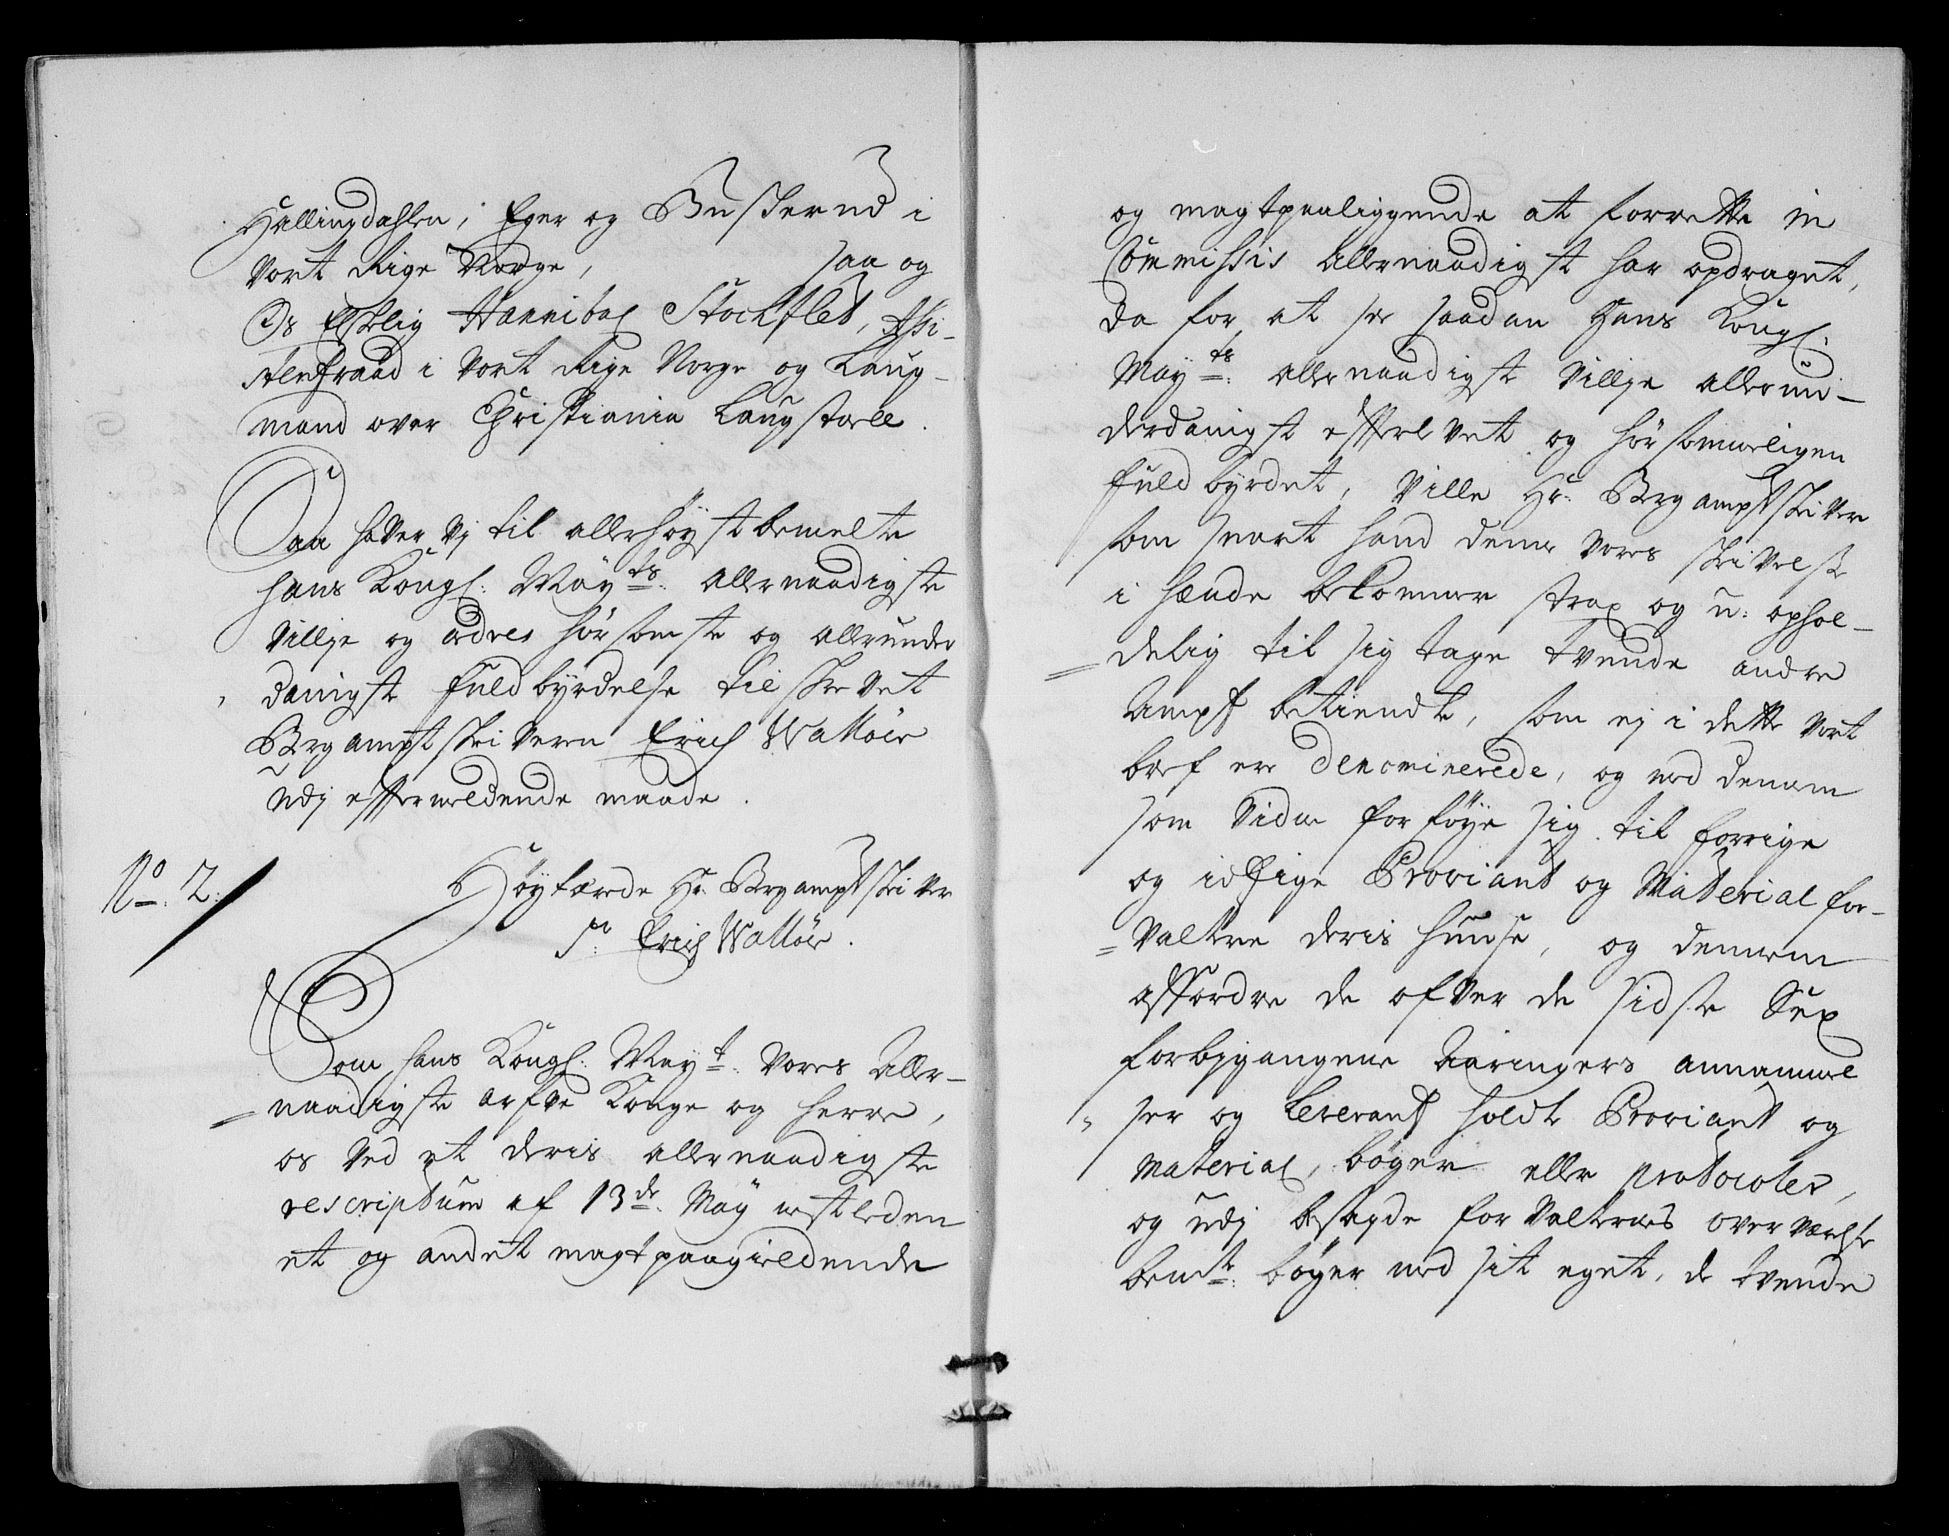 Hallingdahlen, Eger og Buskerud i
Vort Rige Norge, saa og
Os Elskelig Hannibal Stockfled, Assi-
stentzraad i Vort Rige Norge og Laug-
mand over Christiania Laugstoell.
Saa haver Vj til allerhøystbemelte
hans Kongl: Mayts: allernaadigste
Villje og ordres hørsomste og allerunder
danigste fuldbyrdelse tilskrevet
Bergamptskriveren Erich Walløer
udj effter meldende maade.
No. 2:
Høylærde Hr. Bergamptskriver
Sr: Erich Walløer.
Som hans Kongl: Mayt: Vores Aller-
naadigste arfve Konge og herre,
os ved et deris allernaadigste
rescriptum af 13de: May nestleden
et og andet magtpaagieldende
og magtpaaliggende at forrette in
Commissis Allernaadigst har opdraget,
da for at see saadan Hans Kongl.
Mayts: allernaadigste Villje allerun-
derdanigst effterlevet og hørsommeligen
fuldbyrdet, Ville Hr: Bergamptskriver
som snart hand denne vores skrivelse
i hænde bekommer strax og u: ophol-
delig til sig tage tvende andre
Ampts betiendte, som ej i dette Vort
bref ere denominerede, og med dennem
som Vidne forføye sig til forrige
og itzige Proviant og Material for-
Valtere deris Huuse, og dennem
affordre de ofver de sidste Sex
forbigangene Aaringers annammel
ser og Leverantz holdte Proviant og
Material, bøger eller protocoler,
og udj besagde forvalteres overværelse
bemte: bøger med sit eget, de tvende